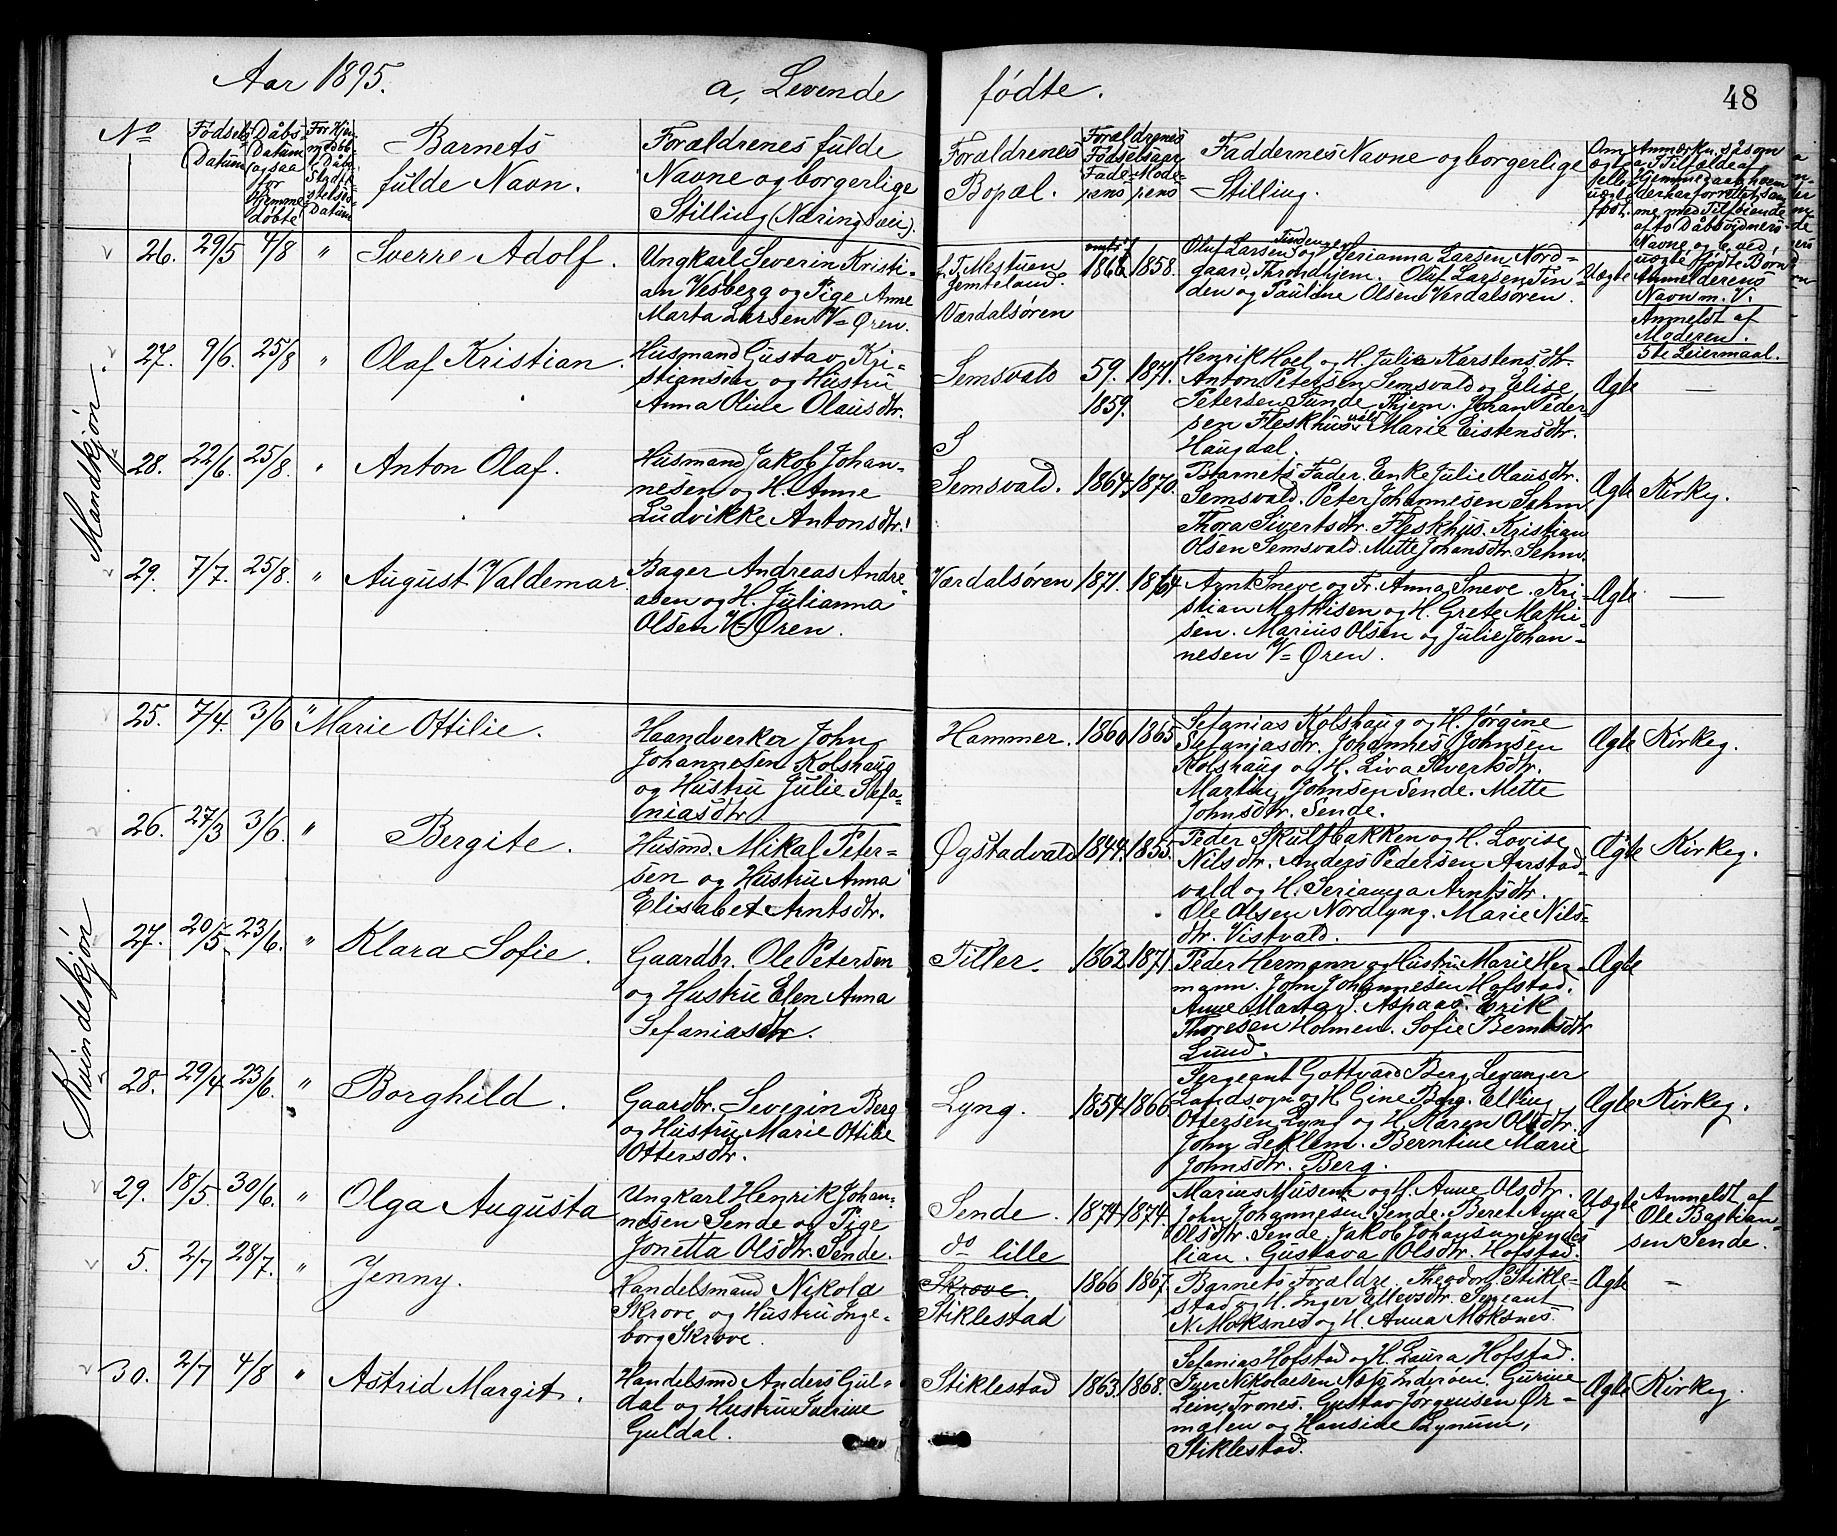 Aar 1895. a, Levende fødte. 48
No
Fødsels Datum
Dåbs Datum (ogsaa for hjemme døbte)
Barnets
fulde Navn.
Forældrenes fulde
Navne og borgerlige
Stilling (Næringsvei).
Forældrenes
Bopæl.
Forældrenes
Fødselsaar
Faddernes Navne og borgerlige
Stilling.
Mandkjøn.
26. 29/5 4/8 " Sverre Adolf.
Ungkarl Severin Kristi-
an Vesberg og Pige Anne
Marta Larsen V= Øren.
Jemteland.
Værdalsøren
1868. 1858.
Oluf Larsen Tinden og Serianna Larsen Nord-
gaard, Throndhjem. Oluf Larsen Tin-
den og Pauline Olsen Verdalsøren.
Uægte
Anmeldt af
Moderen.
5te Leiermaal.
27. 9/6. 25/8 " Olaf Kristian.
Husmand Gustav Kri-
stiansen og Hustru
Anna Oline Olausdtr.
Semsvald 59. 1871.
1859.
Henrik Hoel og H. Julie Karstensdtr.
Anton Petersen Semsvald og Elise
Petersen Sunde Thjem. Johan Peder-
sen Fleskhusvald Marie Eistensdtr.
Haugdal.
Ægte —
28. 22/6. 25/8. " Anton Olaf.
Husmand Jakob Johan-
nesen og H. Anne
Ludvikke Antonsdtr.
S
Semsvald. 1864. 1870.
Barnets Fader. Enke Julie Olausdtr.
Semsvald. Peter Johannesen Sehm
Thora Sivertsdtr. Fleskhus. Kristian
Olsen Semsvald. Mette Johansdtr. Sehm.
Ægte Kirkeg.
29. 7/7. 25/8. " August Valdemar
Bager Andreas Andre
asen og H. Julianna
Olsen V= Øren.
Værdalsøren 1871. 1864
Arnt Sneve og Fr. Anna Sneve. Kri-
stian Mathisen og H. Grete Mathi-
sen. Marius Olsen og Julie Johan-
nesen V= Øren.
Ægte —
Kvindekjøn
25. 7/4. 3/6 " Marie Ottilie.
Haandverker John
Johannesen Kolshaug
og Hustru Julie Stefa-
niasdtr
Hammer. 1860 1865
Sefanias Kolshaug og H. Jørgine
Sefaniasdtr. Johannes Johnsen
Kolshaug og H. Liva Sivertsdtr.
Martin Johnsen Sende. Mette
Johnsdtr. Sende.
Ægte Kirkeg.
26. 27/3 3/6. " Bergite.
Husmd. Mikal Peter-
sen og Hustru Anna
Elisabet Arntsdtr.
Øgstadvald 1844. 1855.
Peder Skulbakken og H. Lovise
Nilsdtr. Anders Pedersen Aarstad-
vald og H. Serianna Arntsdtr.
Ole Olsen Nordlyng. Marie Nils-
dtr. Vistvald.
Ægte Kirkeg.
27. 20/5. 23/6. " Klara Sofie.
Gaardbr. Ole Petersen
og Hustru Elen Anna
Sefaniasdtr.
Tiller. 1862 1871
Peder Hermann og Hustru Marie Her-
mann. John Johannesen Hofstad.
Anne Marta J. Aspaas. Erik
Thoresen Holmen. Sofie Berntsdtr
Lund.
Ægte
28. 29/4 23/6. " Borghild.
Gaardbr. Severin Berg
og Hustru Marie Ottilie
Ottersdtr.
Lyng. 1854 1866
Sergeant Gottvard Berg Levanger
Landsogn og H. Gine Berg. Elling
Ottersen Lyng og H. Karen Olsdtr.
John Leklem. Berntine Marie
Johnsdtr. Berg.
Ægte Kirkeg.
29. 18/5. 30/6. " Olga Augusta
Ungkarl Henrik Johan-
nesen Sende og Pige
Jonetta Olsdtr. Sende.
Sende. 1874. 1874.
do lille
Marius Musem og H. Anne Olsdtr.
John Johannesen Sende. Beret Anna
Olsdtr. Sende. Jakob Johansen Sendes
lian. Gustava Olsdtr. Hofstad.
Uægte Anmeldt af
Ole Bastian-
sen Sende.
5. 2/7 28/7. " Jenny.
Handelsmand Nikolai
Skrove og Hustru Inge-
borg Skrove.
Skrove.
Stiklestad
1866 1867.
Barnets Forældre. Theodor Stikle-
stad og H. Inger Ellevsdtr. Sergeant
N. Moksnes og H. Anna Moksnes.
Ægte -
30. 2/7 4/8 " Astrid Margit.
Handelsmd Anders Gul-
dal og Hustru Iverine
Guldal.
Stiklestad 1863. 1868.
Sefanias Hofstad og H. Laura Hofstad.
Iver Nikolaisen Næs Inderøen. Gurine
Lein, Trones. Gustav Jørgensen Ør-
malen og Hanside Lynum,
Stiklestad.
Ægte Kirkeg.